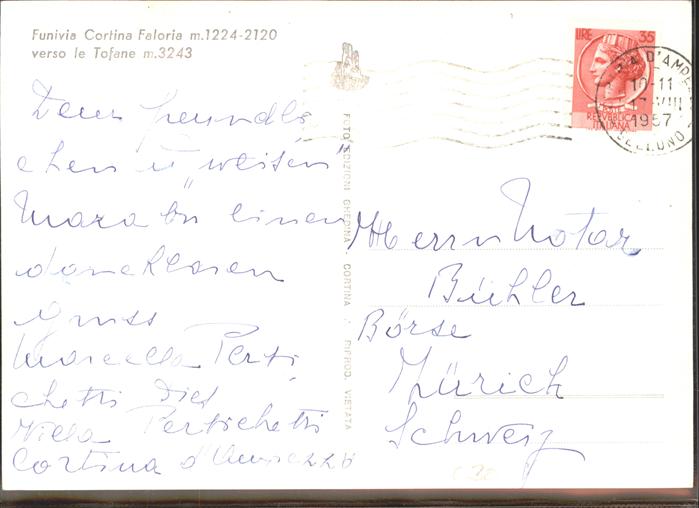 Funivia Cortina Faloria m.1224-2120
verso le Tofane m.3243
Dem freundli
chen u „weisen"
einen
dankbaren
Gruss
Marcella Perti
chetti
Villa Pertichetti
Cortina d'Ampezzo
FOTO EDIZIONI GHEDINA - CORTINA - RIPROD. VIETATA
LIRE 35
REPUBBLICA
ITALIANA
D'AMPE
10-11
VIII
1957
BELLUNO
Herrn Notar
Bühler
Börse
Zürich
Schweiz